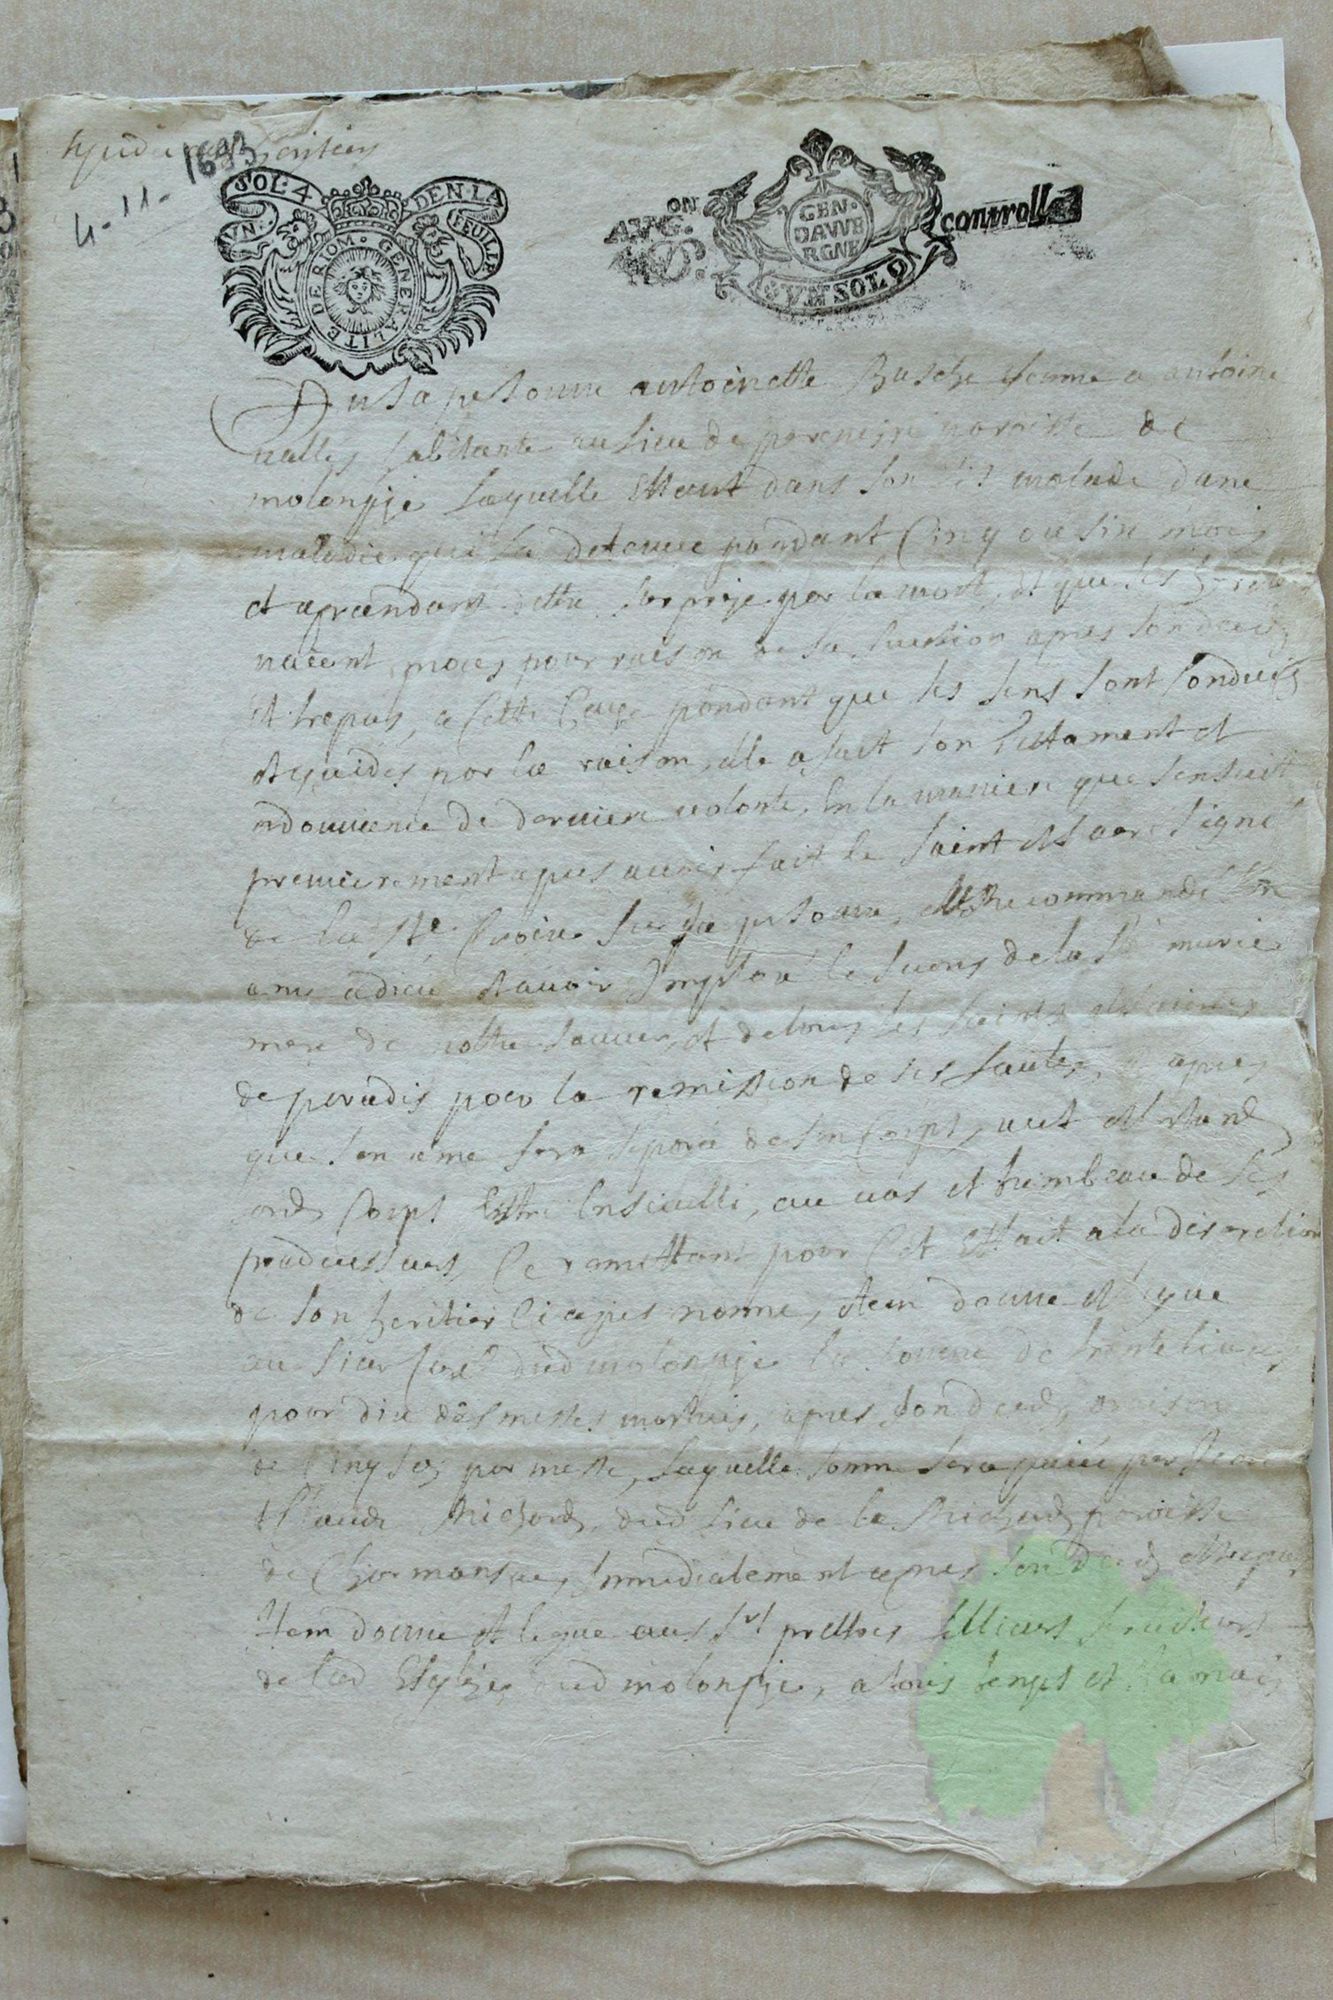 4-11-1693
VN SOL 4 DEN LA FEUILLE
GENERALITE DE RIOM
AVG.ON
GEN. DAVVERGNE
VN SOL
controlle
En sa personne antoinette Basche femme a antoine
nalles habitante au lieu de paroisse de
molonpije laquelle estant dans son lit malade dune
maladie qui la detenue pandant Cinq ou six mois
et aprandant dettre surprize par la mort, et que ses
naient proces pour raison de sa sucsion apres son deces
et trepas, a cette Cauze pandant que ses sens sont Conduis
et guides par la raison, elle a fait son testament et
ordonnence de derniere volonte, En la maniere que sensuit
premieirement apres avoir fait le saint signe
de la ste Croix sur sa personne, recommandé son
ame a dieu et avoir Imploré le secours de la ste marie
mere de nostre sauveur, et de tous les saints et saintes
de paradis pour la remission de ses fautes, et apres
que son ame sera separé de son Corps, veut et entand
sond Corps Estre Enseveli, au vas et tumbeau de ses
praduissures, Ce ramettant pour Cet Effait a la discretion
de son heritier Ci apres nomme, Item donne et legue
au sieur Curé dud molonpije la somme de trante livres
pour dire des messes mortuis, apres son deces, a raison
de Cinq sos par messe, laquelle somme sera paiée par
Claude Michard, dud lieu de la Michard paroisse
de Chormansac, Immediatement apres son deces
Item donne et legue aus Srs prestres
de lad Esglize dud molonpije, a tous temps et Jamais